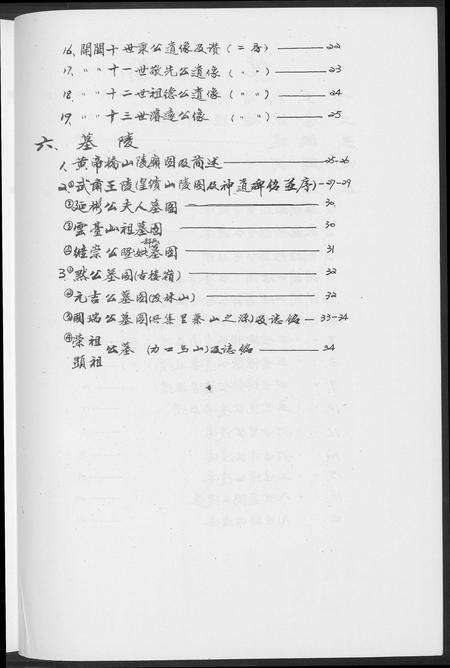 16、開閩十世秉公遺像及讚（二房）——22
17、〃〃十一世敬先公遺像（〃〃）——23
18、〃〃十二世祖德公遺像（〃〃）——24
19、〃〃十三世濬遠公像（〃〃）——25
六、墓陵
1、黃帝橋山陵廟圖及简述——25-26
2、①武肅王陵(皇績山陵圖及神道碑銘並序)—27-29
②延彬公夫人墓圖——30
③雲臺山祖墓圖——30
④繼崇公暨妣墓圖——31
3、①默公墓圖(古樓嶺)——32
②元吉公墓圖——32
③國瑞公墓圖及誌銘—33-34
④榮祖
顯祖 公墓及誌銘——34